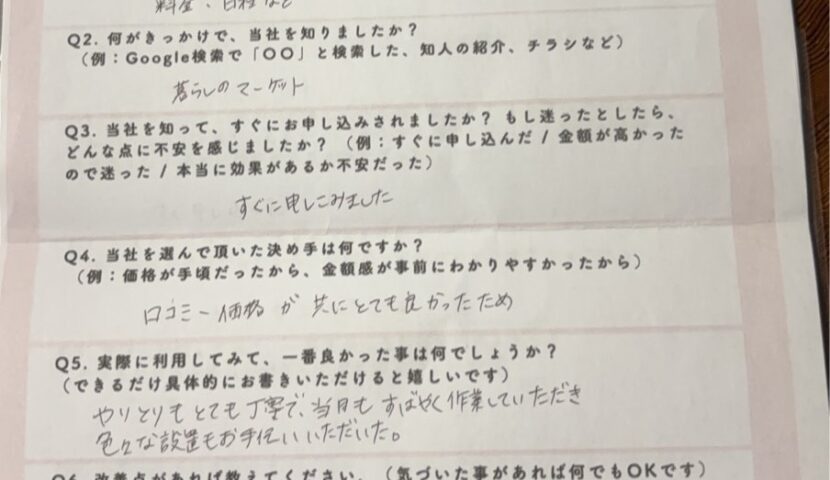 料金、日程など
Q2. 何がきっかけで、当社を知りましたか?
(例:Google検索で「〇〇」と検索した、知人の紹介、チラシなど)
暮らしのマーケット
Q3. 当社を知って、すぐにお申し込みされましたか? もし迷ったとしたら、
どんな点に不安を感じましたか? (例:すぐに申し込んだ / 金額が高かった
ので迷った / 本当に効果があるか不安だった)
すぐに申しこみました
Q4. 当社を選んで頂いた決め手は何ですか?
(例:価格が手頃だったから、金額感が事前にわかりやすかったから)
口コミー価格が共にとても良かったため
Q5. 実際に利用してみて、一番良かった事は何でしょうか?
(できるだけ具体的にお書きいただけると嬉しいです)
やりとりもとても丁寧で、当日もすばやく作業していただき
色々な設置もお手伝いいただいた。
Q6. 改善点があれば教えてください。(気づいた事があれば何でもOKです)